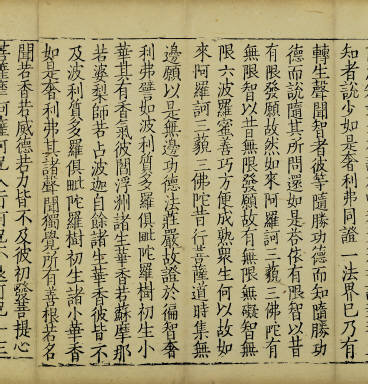 知者說少如是奢利弗同證一法界已乃有
轉生聲聞智者彼等隨勝功德而知隨勝功
德而說隨其所問還如是荅依有限智以昔
有限發願故然如來阿羅訶三藐三佛陀有
無限智以昔無限發願故有無限無礙智無
限六波羅蜜善巧方便成熟眾生何以故如
來阿羅訶三藐三佛陀昔行菩薩道時集無
邊願以是無邊功德法莊嚴故證於徧智奢
利弗譬如波利質多羅俱毗陀羅樹初生小
華其有香氣彼閻浮洲諸生華香若蘇摩那
若婆梨師若占波迦自餘諸生華香彼皆不
及波利質多羅俱毗陀羅樹初生諸小華香
如是奢利弗其諸聲聞獨覺所有善根若名
聞若香若威德若力皆不及彼初發菩提心